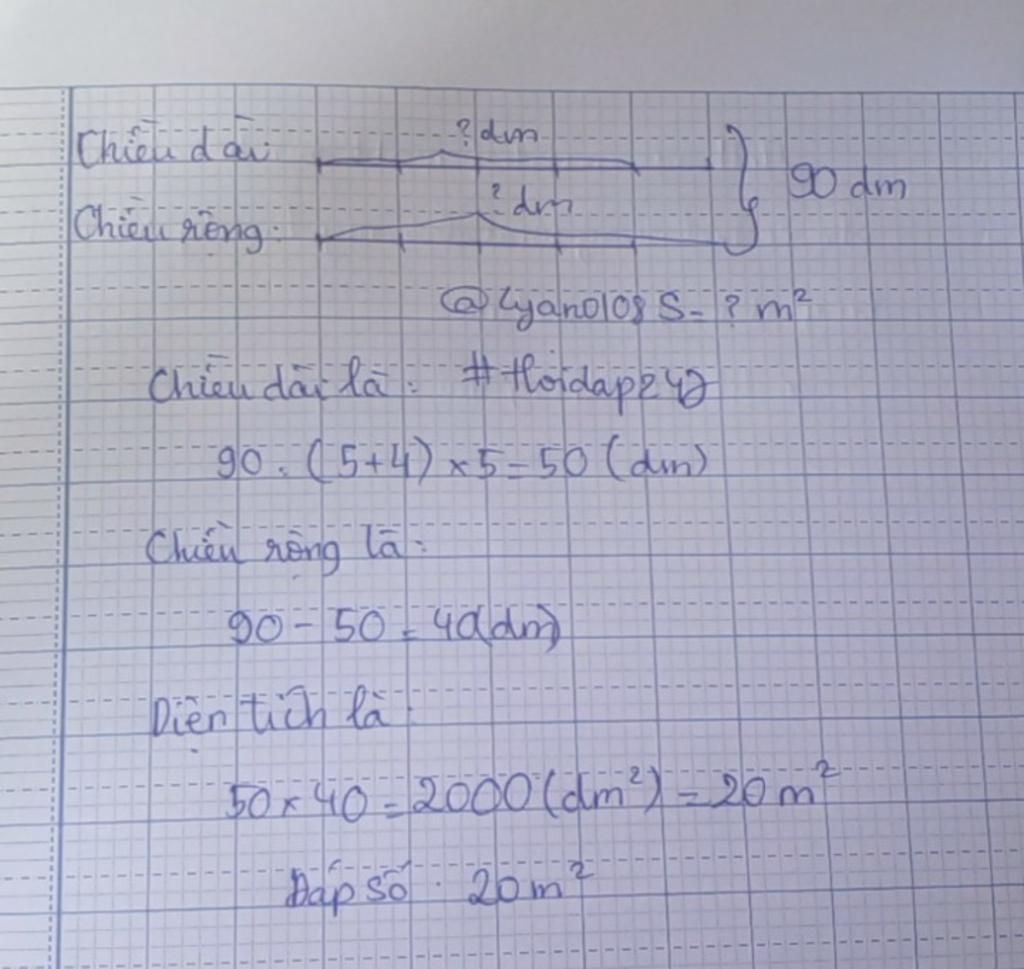 ? dm
Chiều dài:
90 dm
? dm
Chiều rộng:
@Lyan0108 S = ? m²
Chiều dài là: #Hoidap247
90 : (5+4) × 5 = 50 (dm)
Chiều rộng là:
90 - 50 = 40(dm)
Diện tích là:
50 × 40 = 2000 (dm²) = 20 m²
Đáp số : 20 m²